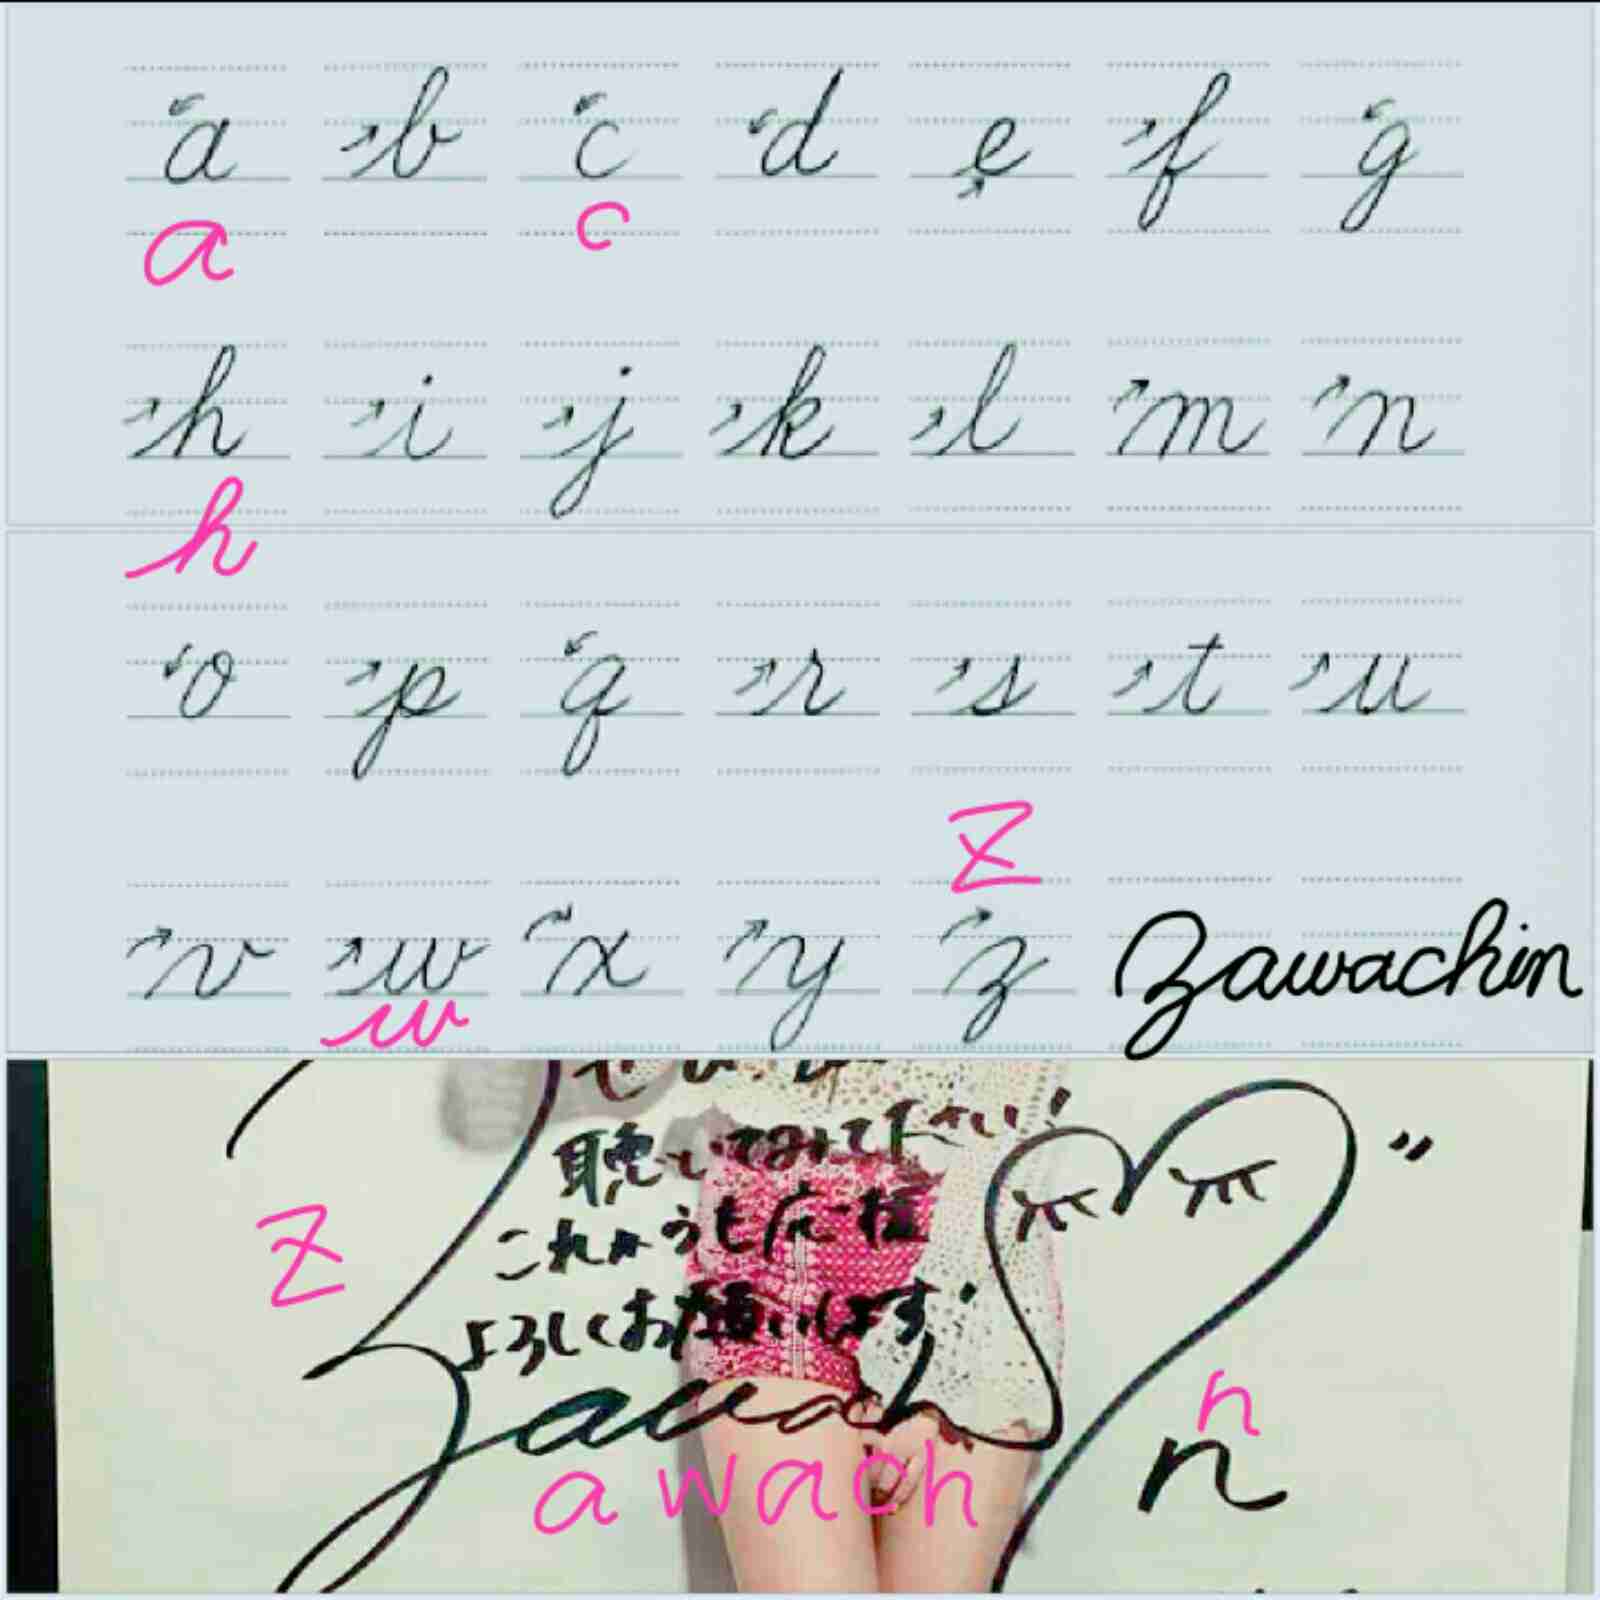 a b c d e f g
a c
h i j k l m n
h
o p q r s t u
z
v w x y z zawachin
w
聴いてみて下さい!
z
これからも応援
よろしくお願いします!
zawach
n
awach
n